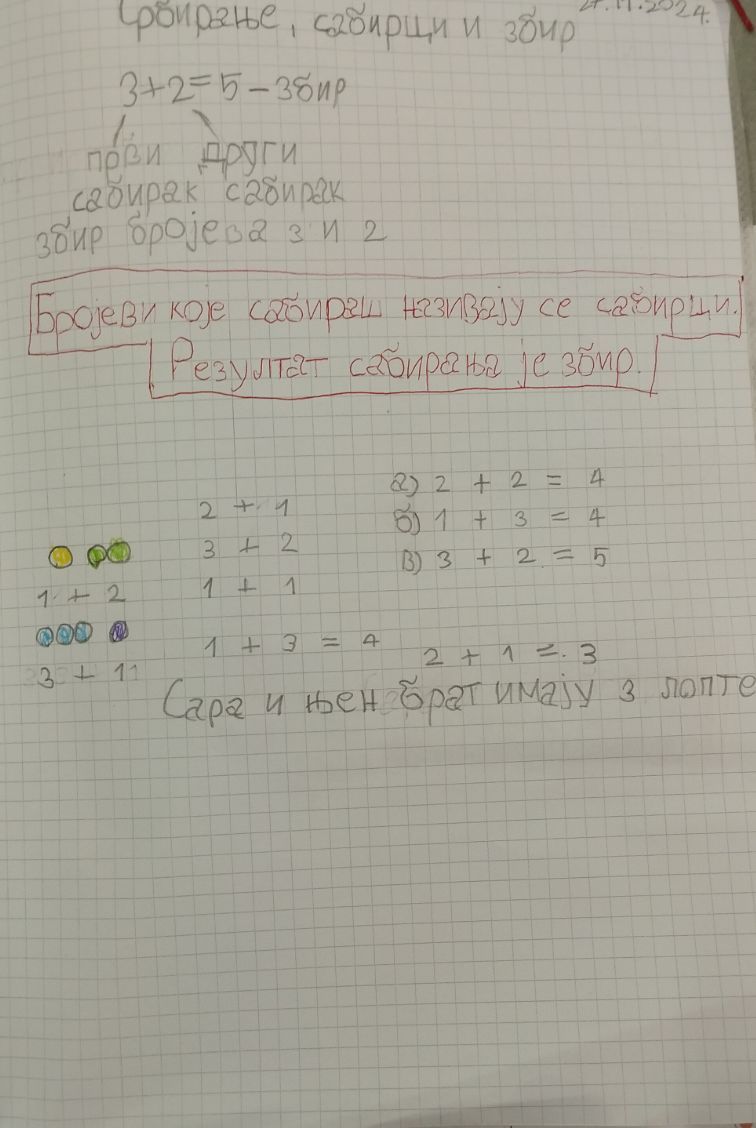 27.11.2024.
Сабирање, сабирци и збир
3+2=5-Збир
први други
сабирак сабирак
збир бројева 3 и 2
Бројеви које сабираш називају се сабирци.
Резултат сабирања је збир.
1 + 2
3 + 1
2 + 1
3 + 2
1 + 1
1 + 3 = 4
а) 2 + 2 = 4
б) 1 + 3 = 4
в) 3 + 2 = 5
2 + 1 = 3
Сара и њен брат имају 3 лопте